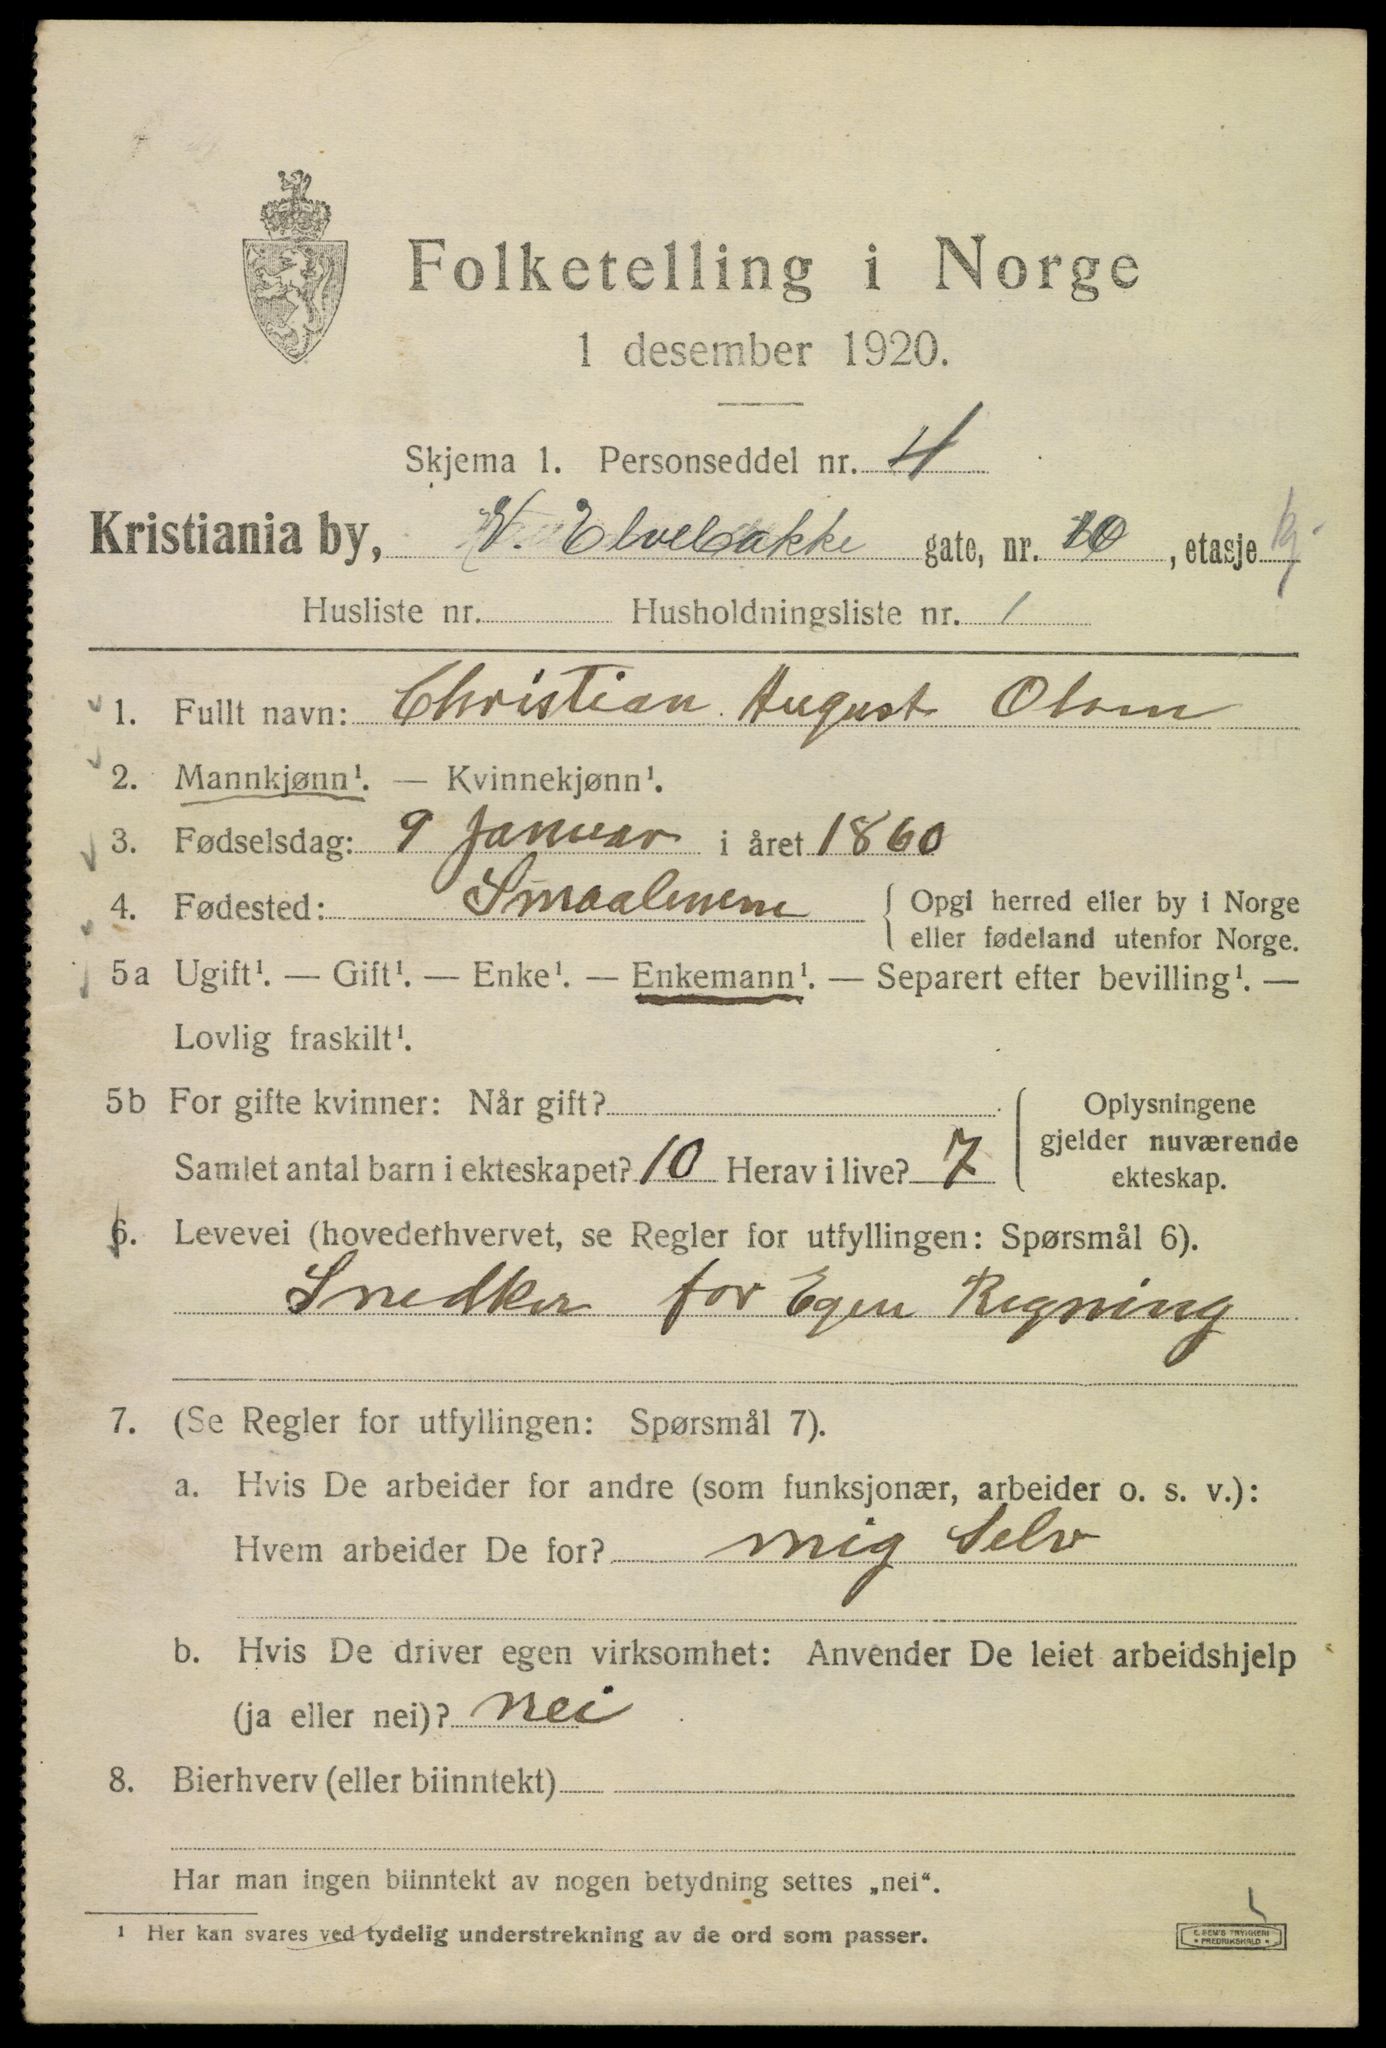 Folketelling i Norge
1 desember 1920.
Skjema 1. Personseddel nr. 4
Kristiania by, V. Elvebakke gate, nr. 10, etasje kj.
Husliste nr. Husholdningsliste nr. 1
1. Fullt navn: Christian August Olsen
2. Mannkjønn¹. — Kvinnekjønn¹.
3. Fødselsdag: 9 Januar i året 1860
4. Fødested: Smaalenene { Opgi herred eller by i Norge
eller fødeland utenfor Norge.
5a Ugift¹. — Gift¹. — Enke¹. — Enkemann¹. — Separert efter bevilling¹. —
Lovlig fraskilt¹.
5b For gifte kvinner: Når gift?
Samlet antal barn i ekteskapet? 10 Herav i live? 7
Oplysningene
gjelder nuværende
ekteskap.
6. Levevei (hovederhvervet, se Regler for utfyllingen: Spørsmål 6).
Snedker for Egen Regning
7. (Se Regler for utfyllingen: Spørsmål 7).
a. Hvis De arbeider for andre (som funksjonær, arbeider o. s. v.):
Hvem arbeider De for? mig Selv
b. Hvis De driver egen virksomhet: Anvender De leiet arbeidshjelp
(ja eller nei)? nei
8. Bierhverv (eller biinntekt)
Har man ingen biinntekt av nogen betydning settes „nei“.
¹ Her kan svares ved tydelig understrekning av de ord som passer.
E. SEM'S TRYKKERI
• FREDRIKSHALD •